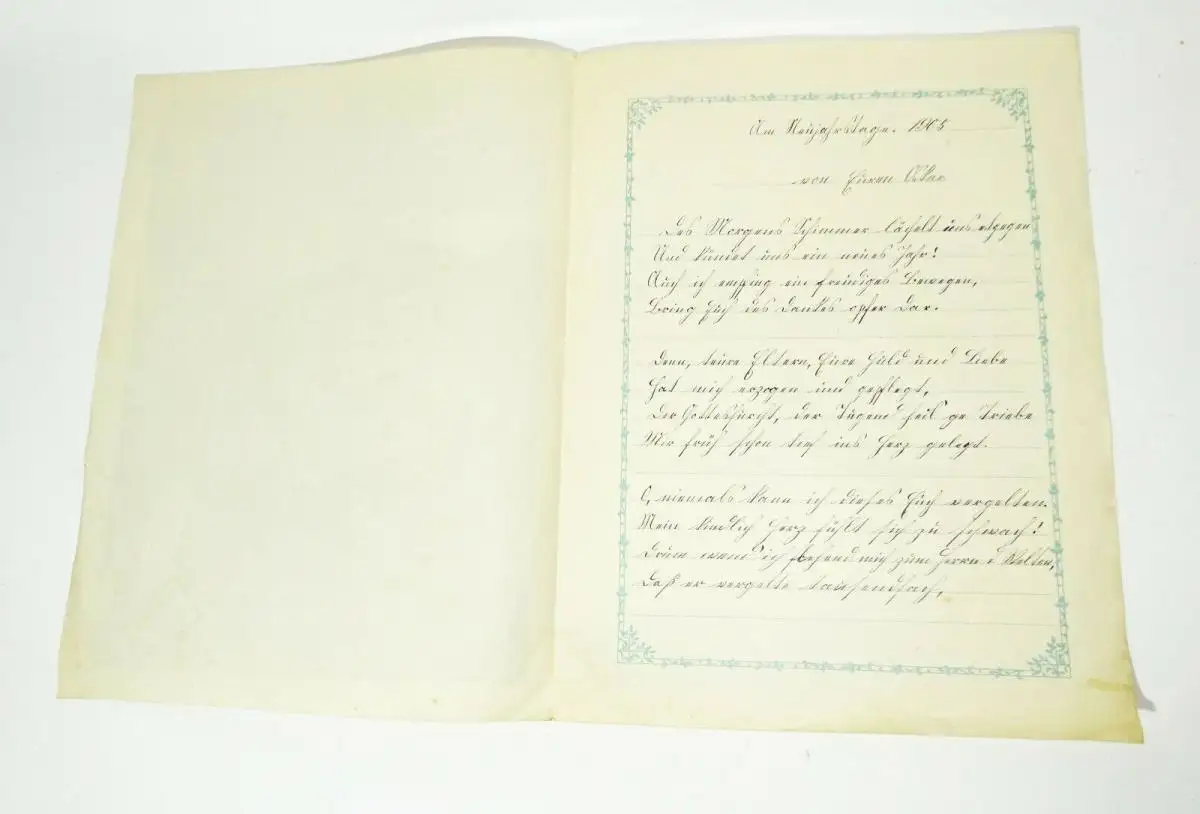 Am Neujahrstage. 1905
von Euren Oskar
Des Morgens Schimmer lächelt uns etgegen
Und kündet uns ein neues Jahr!
Auch ich empfing ein freudiges Bewegen,
Bring Euch des Dankes opfer dar.
Denn, teure Eltern, Eure Huld und Liebe
Hat mich erzogen und gepflegt,
Der Gottesfurcht, der Tugend heil'ge Triebe
Mir früh schon tief ins Herz gelegt.
O, niemals kann ich dieses Euch vergelten.
Mein kindlich Herz fühlt sich zu schwach!
Drum wend' ich flehend mich zum Herrn d Welten,
Daß er vergelte tausendfach,